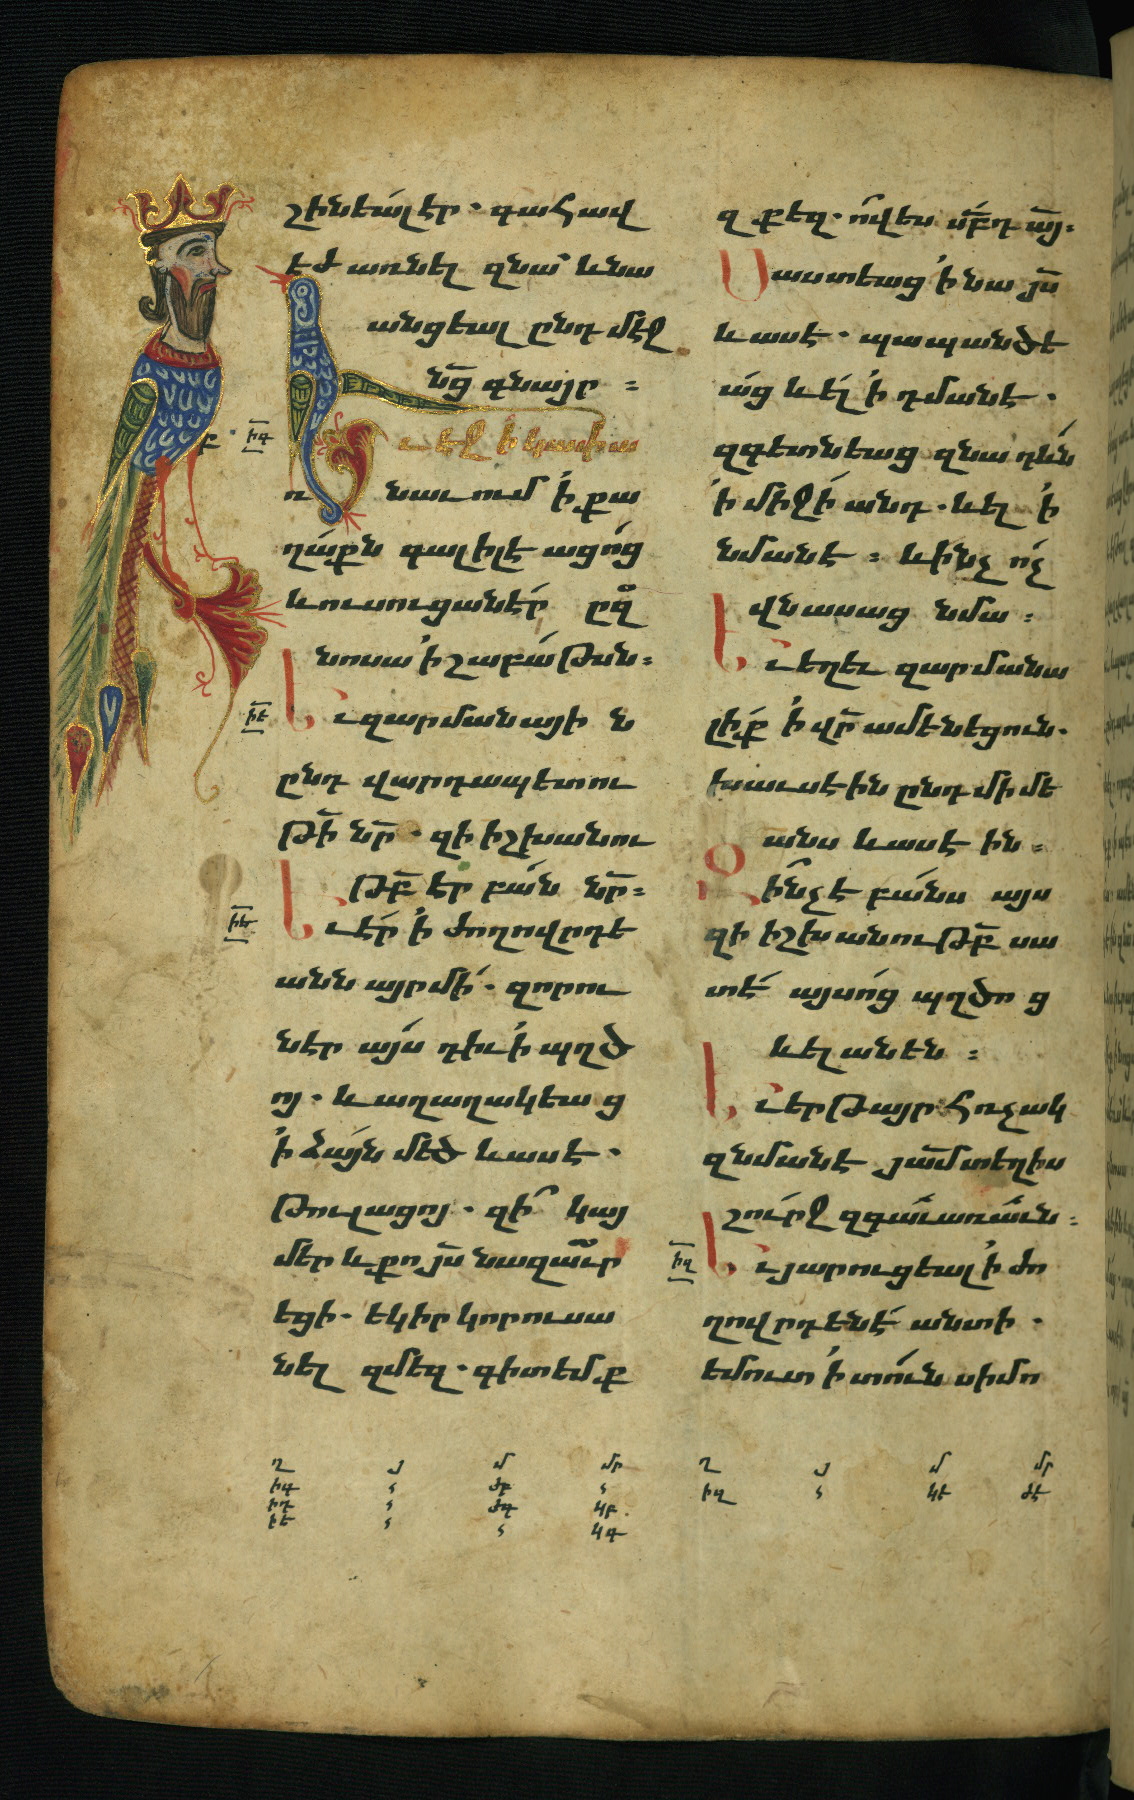 շինեալ էր . գահավ
էժ առնել զնա՛ և նա
անցեալ ընդ մէջ
նց գնայր :
Եւ էջ ի կափառ
նաւում ի քա
ղաքն գալիլեացոց
և ուսուցանէր
նոսա ի շաբաթան :
Եւ զարմանային
ընդ վարդապետու
թի նր . զի իշխանու
թբ էր բան նր :
Եւ էր ի ժողովրդե
անն այր մի . զորու
նէր այս դիւի պղծ
ոյ . և աղաղակեաց
ի ձայն մեծ և ասէ .
Թոյլ ացոյ . զի՞ կայ
մեր և քո յս նազաւր
եցի . եկիր կորուսա
նել զմեզ . գիտեմք
զքեզ . ո՞վ ես սբդ այ :
Սաստեաց ի նա յս
և ասէ . պապանձե
աց և ել ի դմանէ .
զգետնեաց զնա դևն
ի միջի անդ . և ել ի
նմանէ : և ինչ ոչ
վնասաց նմա :
Եւ եղեւ զարմանա
լիք ի վր ամենեցուն .
խաւսէին ընդ միմե
անս և ասէին :
Օինչ է բանս այս
զի իշխանութբ սա
տէ այսոց պղծոց
և ելանեն :
Եւ երթայր հռչակ
զնմանէ յամ տեղիս
շուրջ զգաւառաւն :
Եւ յարուցեալ ի ժո
ղովրդենէ անտի .
եմուտ ի տուն սիմո